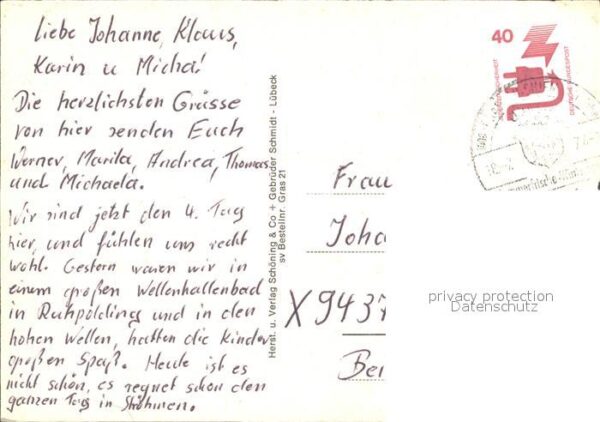 Liebe Johanne, Klaus,
Karin u Micha!
Die herzlichsten Grüsse
von hier senden Euch
Werner, Marita, Andrea, Thomas
und Michaela.
Wir sind jetzt den 4. Tag
hier, und fühlen uns recht
wohl. Gestern waren wir in
einem großen Wellenhallenbad
in Ruhpolding und in den
hohen Wellen, hatten die Kinder
großen Spaß. Heute ist es
nicht schön, es regnet schon den
ganzen Tag in Strömen.
Herst. u. Verlag Schöning & Co + Gebrüder Schmidt - Lübeck
sv Bestellnr. Gras 21
40
DEUTSCHE BUNDESPOST
Frau
Joha
X 9437
Ber
privacy protection
Datenschutz